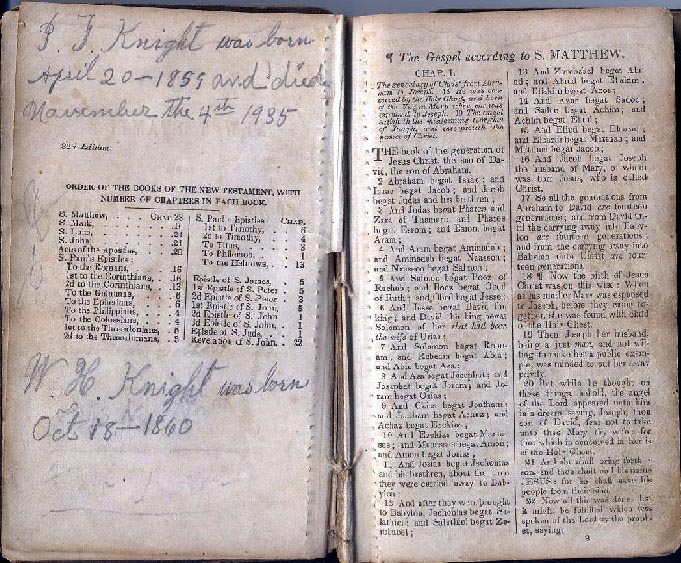 Knight was born
April 20-1859 and died
November the 4th 1935
Edition.
ORDER OF THE BOOKS OF THE NEW TESTAMENT, WITH
NUMBER OF CHAPTERS IN EACH BOOK.
S. Matthew, CHAP. 28
S. Mark, 16
S. Luke, 24
S. John, 21
Acts of the apostles, 28
S. Paul's Epistles
To the Romans, 16
1st to the Corinthians, 16
2d to the Corinthians, 13
To the Galatians, 6
To the Ephesians, 6
To the Philippians, 4
To the Colossians, 4
1st to the Thessalonians, 5
2d to the Thessalonians, 3
S. Paul's Epistles CHAP.
1st to Timothy, 6
2d to Timothy, 4
To Titus, 3
To Philemon, 1
To the Hebrews, 13
Epistle of S. James, 5
1st Epistle of S. Peter 5
2d Epistle of S. Peter 3
1st Epistle of S. John, 5
2d Epistle of S. John 1
3d Epistle of S. John, 1
Epistle of S. Jude, 1
Revelation of S. John, 22
W. H. Knight was born
Oct 18-1860
¶ The Gospel according to S. MATTHEW.
CHAP. I.
The genealogy of Christ from Abra-
ham to Joseph. 18 He was con-
ceived by the Holy Ghost, and born
of the Virgin Mary when she was
espoused to Joseph. 19 The angel
of Joseph, and
of Christ.
THE book of the generation of
Jesus Christ, the son of Da-
vid, the son of Abraham.
2 Abraham begat Isaac; and
Isaac begat Jacob; and Jacob
begat Judas and his brethren;
3 And Judas begat Phares and
Zara of Thamar; and Phares
begat Esrom; and Esrom begat
Aram;
4 And Aram begat Aminadab;
and Aminadab begat Naasson;
and Naasson begat Salmon;
5 And Salmon begat Booz of
Rachab; and Booz begat Obed
of Ruth; and Obed begat Jesse;
6 And Jesse begat David the
king; and David the king begat
Solomon of her that had been
the wife of Urias;
7 And Solomon begat Robo-
am; and Roboam begat Abia;
and Abia begat Asa;
8 And Asa begat Josaphat; and
Josaphat begat Joram; and Jo-
ram begat Ozias;
9 And Ozias begat Joatham;
and Joatham begat Achaz; and
Achaz begat Ezekias;
10 And Ezekias begat Manas-
ses; and Manasses begat Amon;
and Amon begat Josias;
11 And Josias begat Jechonias
and his brethren, about the time
they were carried away to Bab-
ylon
12 And after they were brought
to Babylon, Jechonias begat Sa-
lathiel; and Salathiel begat Zo-
robabel;
13 And Zorobabel begat Abi-
ud; and Abiud begat Eliakim;
and Eliakim begat Azor;
14 And Azor begat Sadoc;
and Sadoc begat Achim; and
Achim begat Eliud;
15 And Eliud begat Eleazar;
and Eleazar begat Matthan; and
Matthan begat Jacob;
16 And Jacob begat Joseph
the husband of Mary, of whom
was born Jesus, who is called
Christ.
17 So all the generations from
Abraham to David are fourteen
generations; and from David un-
til the carrying away into Baby-
lon are fourteen generations;
and from the carrying away into
Babylon unto Christ are four-
teen generations.
18 ¶ Now the birth of Jesus
Christ was on this wise: When
as his mother Mary was espoused
to Joseph, before they came to-
gether, she was found with child
of the Holy Ghost.
19 Then Joseph her husband,
being a just man, and not wil-
ling to make her a public exam-
ple, was minded to put her away
privily.
20 But while he thought on
these things, behold, the angel
of the Lord appeared unto him
in a dream, saying, Joseph, thou
son of David, fear not to take
unto thee Mary thy wife: for
that which is conceived in her is
of the Holy Ghost.
21 And she shall bring forth a
son, and thou shalt call his name
JESUS: for he shall save his
people from their sins.
22 Now all this was done, that
it might be fulfilled which was
spoken of the Lord by the proph-
et, saying,